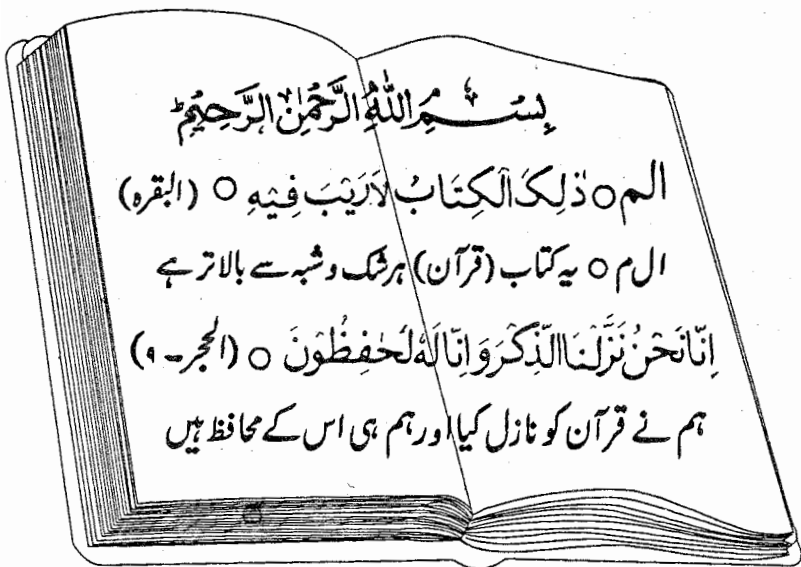 بِسْمِ اللّٰهِ الرَّحْمٰنِ الرَّحِيْمِ ط
الم ○ ذٰلِكَ الْكِتَابُ لَارَيْبَ فِيْهِ ○ (البقره)
ال م ○ یہ کتاب (قرآن) ہر شک و شبہ سے بالاتر ہے
اِنَّا نَحْنُ نَزَّلْنَا الذِّكْرَ وَ اِنَّا لَهٗ لَحٰفِظُوْنَ ○ (الحجر ـ ۹)
ہم نے قرآن کو نازل کیا اور ہم ہی اس کے محافظ ہیں